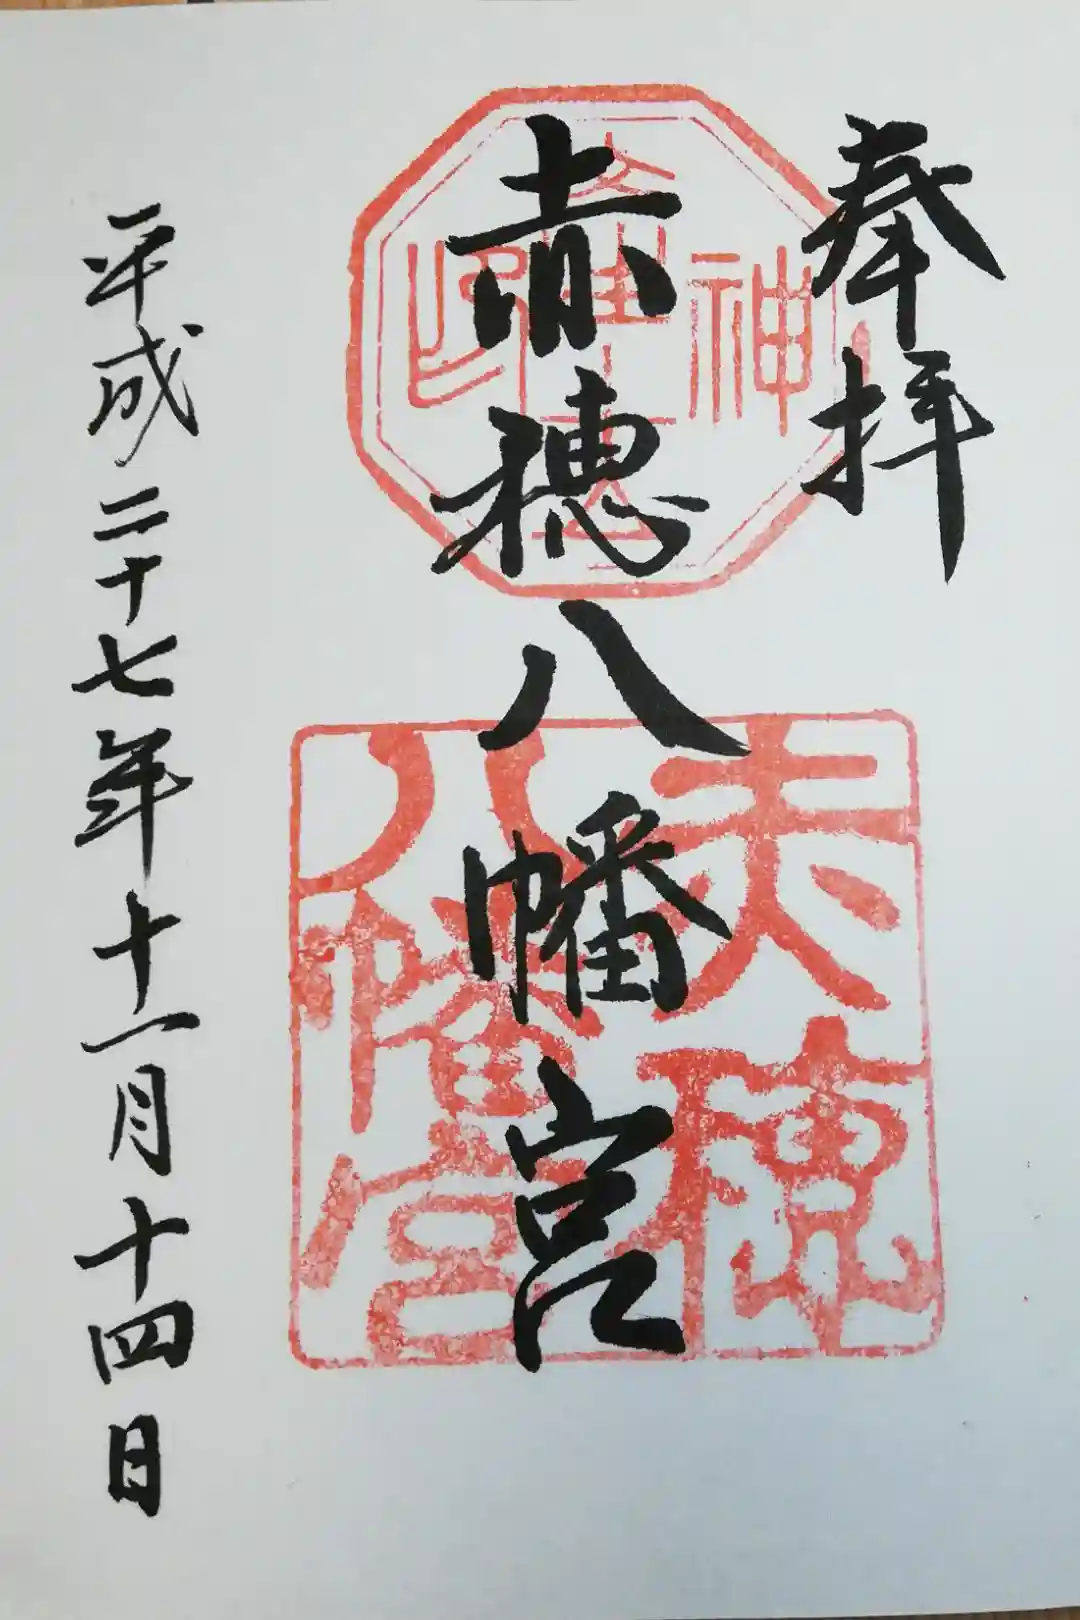 奉拝
赤穂八幡宮
平成二十七年十一月十四日
神
印
赤穂
八幡宮